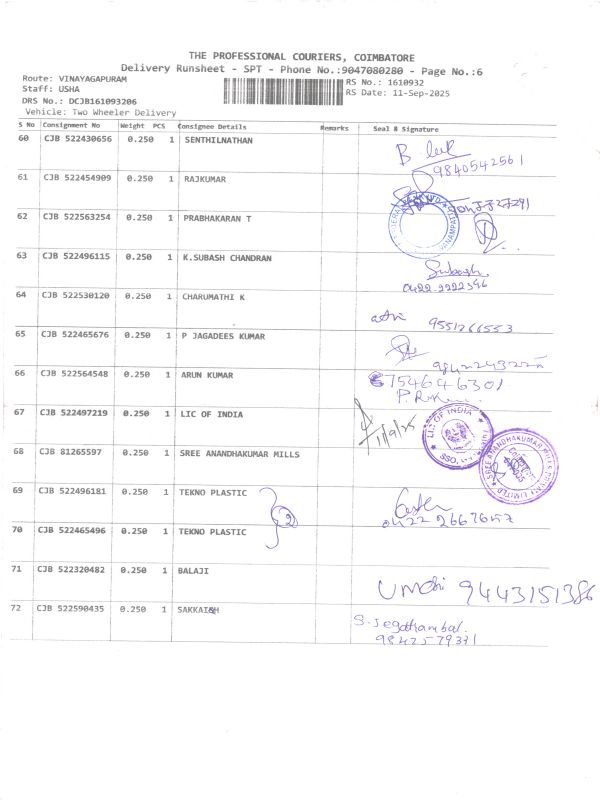 THE PROFESSIONAL COURIERS, COIMBATORE
Delivery Runsheet - SPT - Phone No.:9047080280 - Page No.:6
Route: VINAYAGAPURAM
Staff: USHA
DRS No.: DCJB161093206
Vehicle: Two Wheeler Delivery
RS No.: 1610932
RS Date: 11-Sep-2025
S No Consignment No Weight PCS Consignee Details Remarks Seal & Signature
60 CJB 522430656 0.250 1 SENTHILNATHAN
9840542561
61 CJB 522454909 0.250 1 RAJKUMAR
62 CJB 522563254 0.250 1 PRABHAKARAN T
63 CJB 522496115 0.250 1 K.SUBASH CHANDRAN
Subash
0422.2222396
64 CJB 522530120 0.250 1 CHARUMATHI K
9551266553
65 CJB 522465676 0.250 1 P JAGADEES KUMAR
66 CJB 522564548 0.250 1 ARUN KUMAR
754646301
67 CJB 522497219 0.250 1 LIC OF INDIA
11/9/25
LIC OF INDIA
68 CJB 81265597 0.250 1 SREE ANANDHAKUMAR MILLS
SREE ANANDHAKUMAR MILLS PRIVATE LIMITED
69 CJB 522496181 0.250 1 TEKNO PLASTIC
2
0422 2667657
70 CJB 522465496 0.250 1 TEKNO PLASTIC
71 CJB 522320482 0.250 1 BALAJI
9443151386
72 CJB 522590435 0.250 1 SAKKAIAH
S. Jegathambal.
9842579331